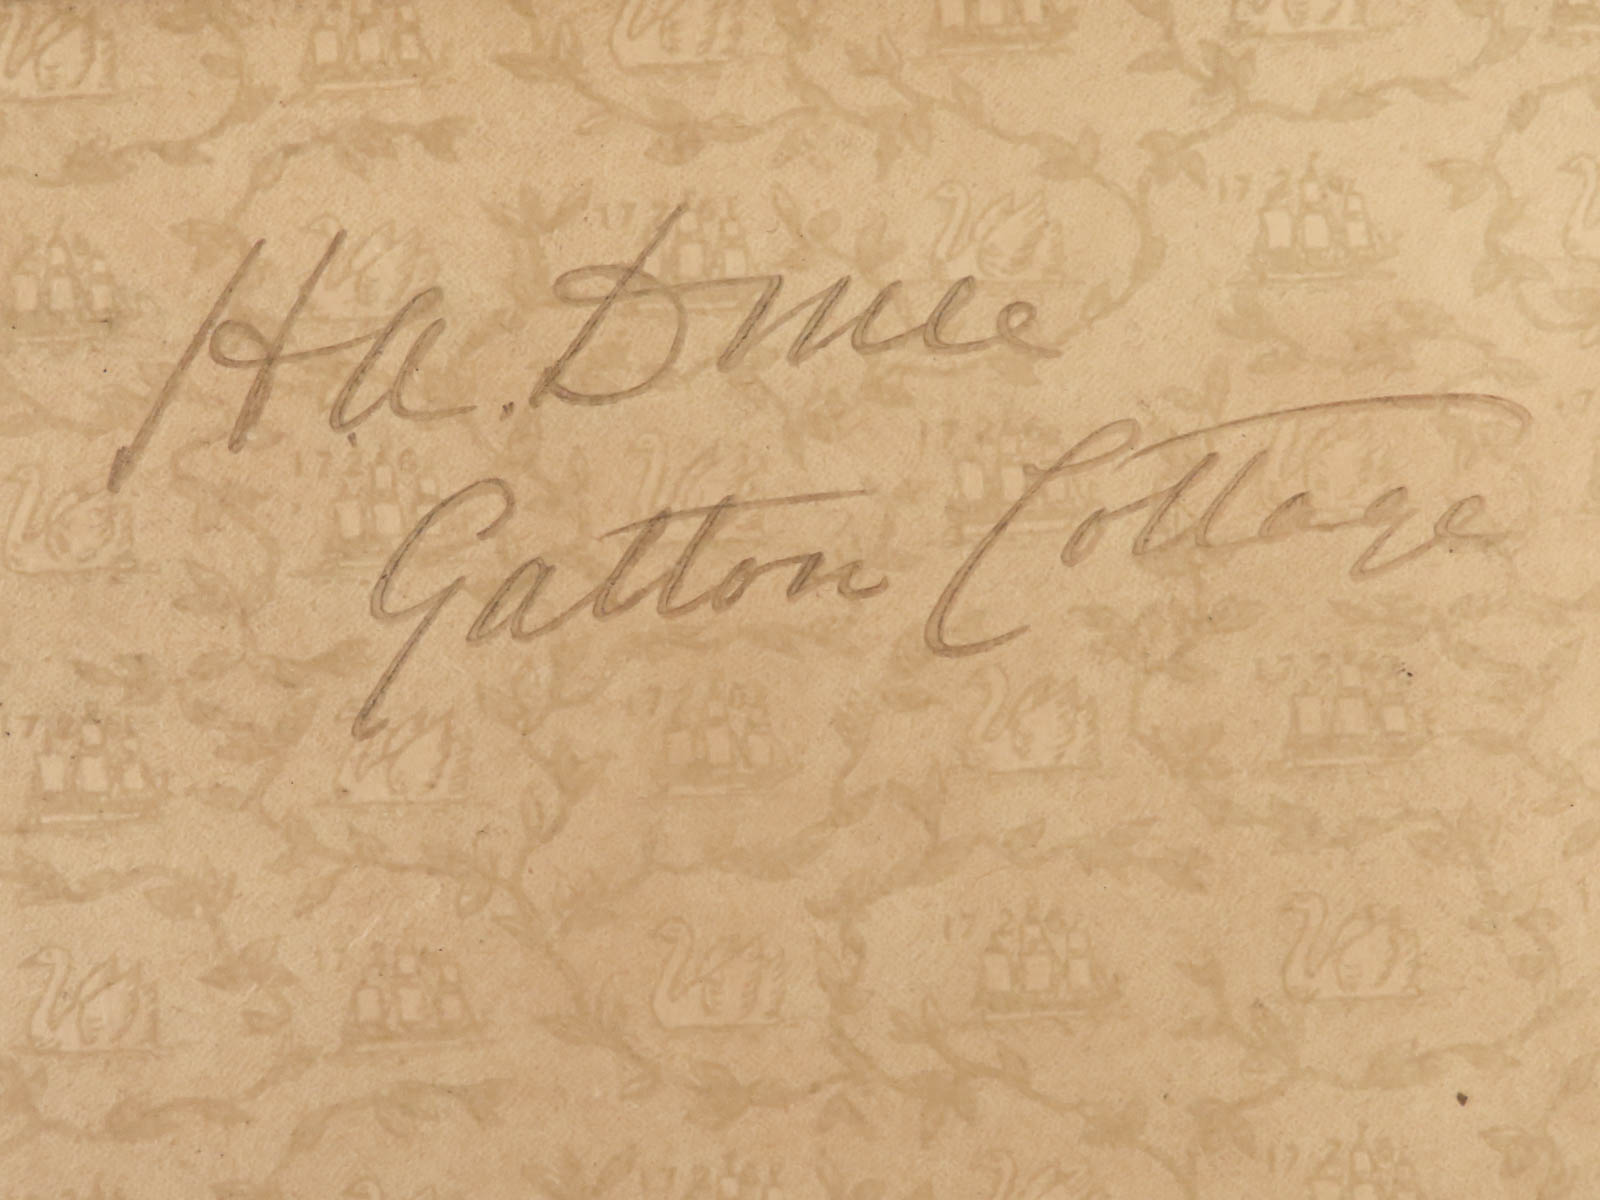 H.A. Druce
Gatton Cottage